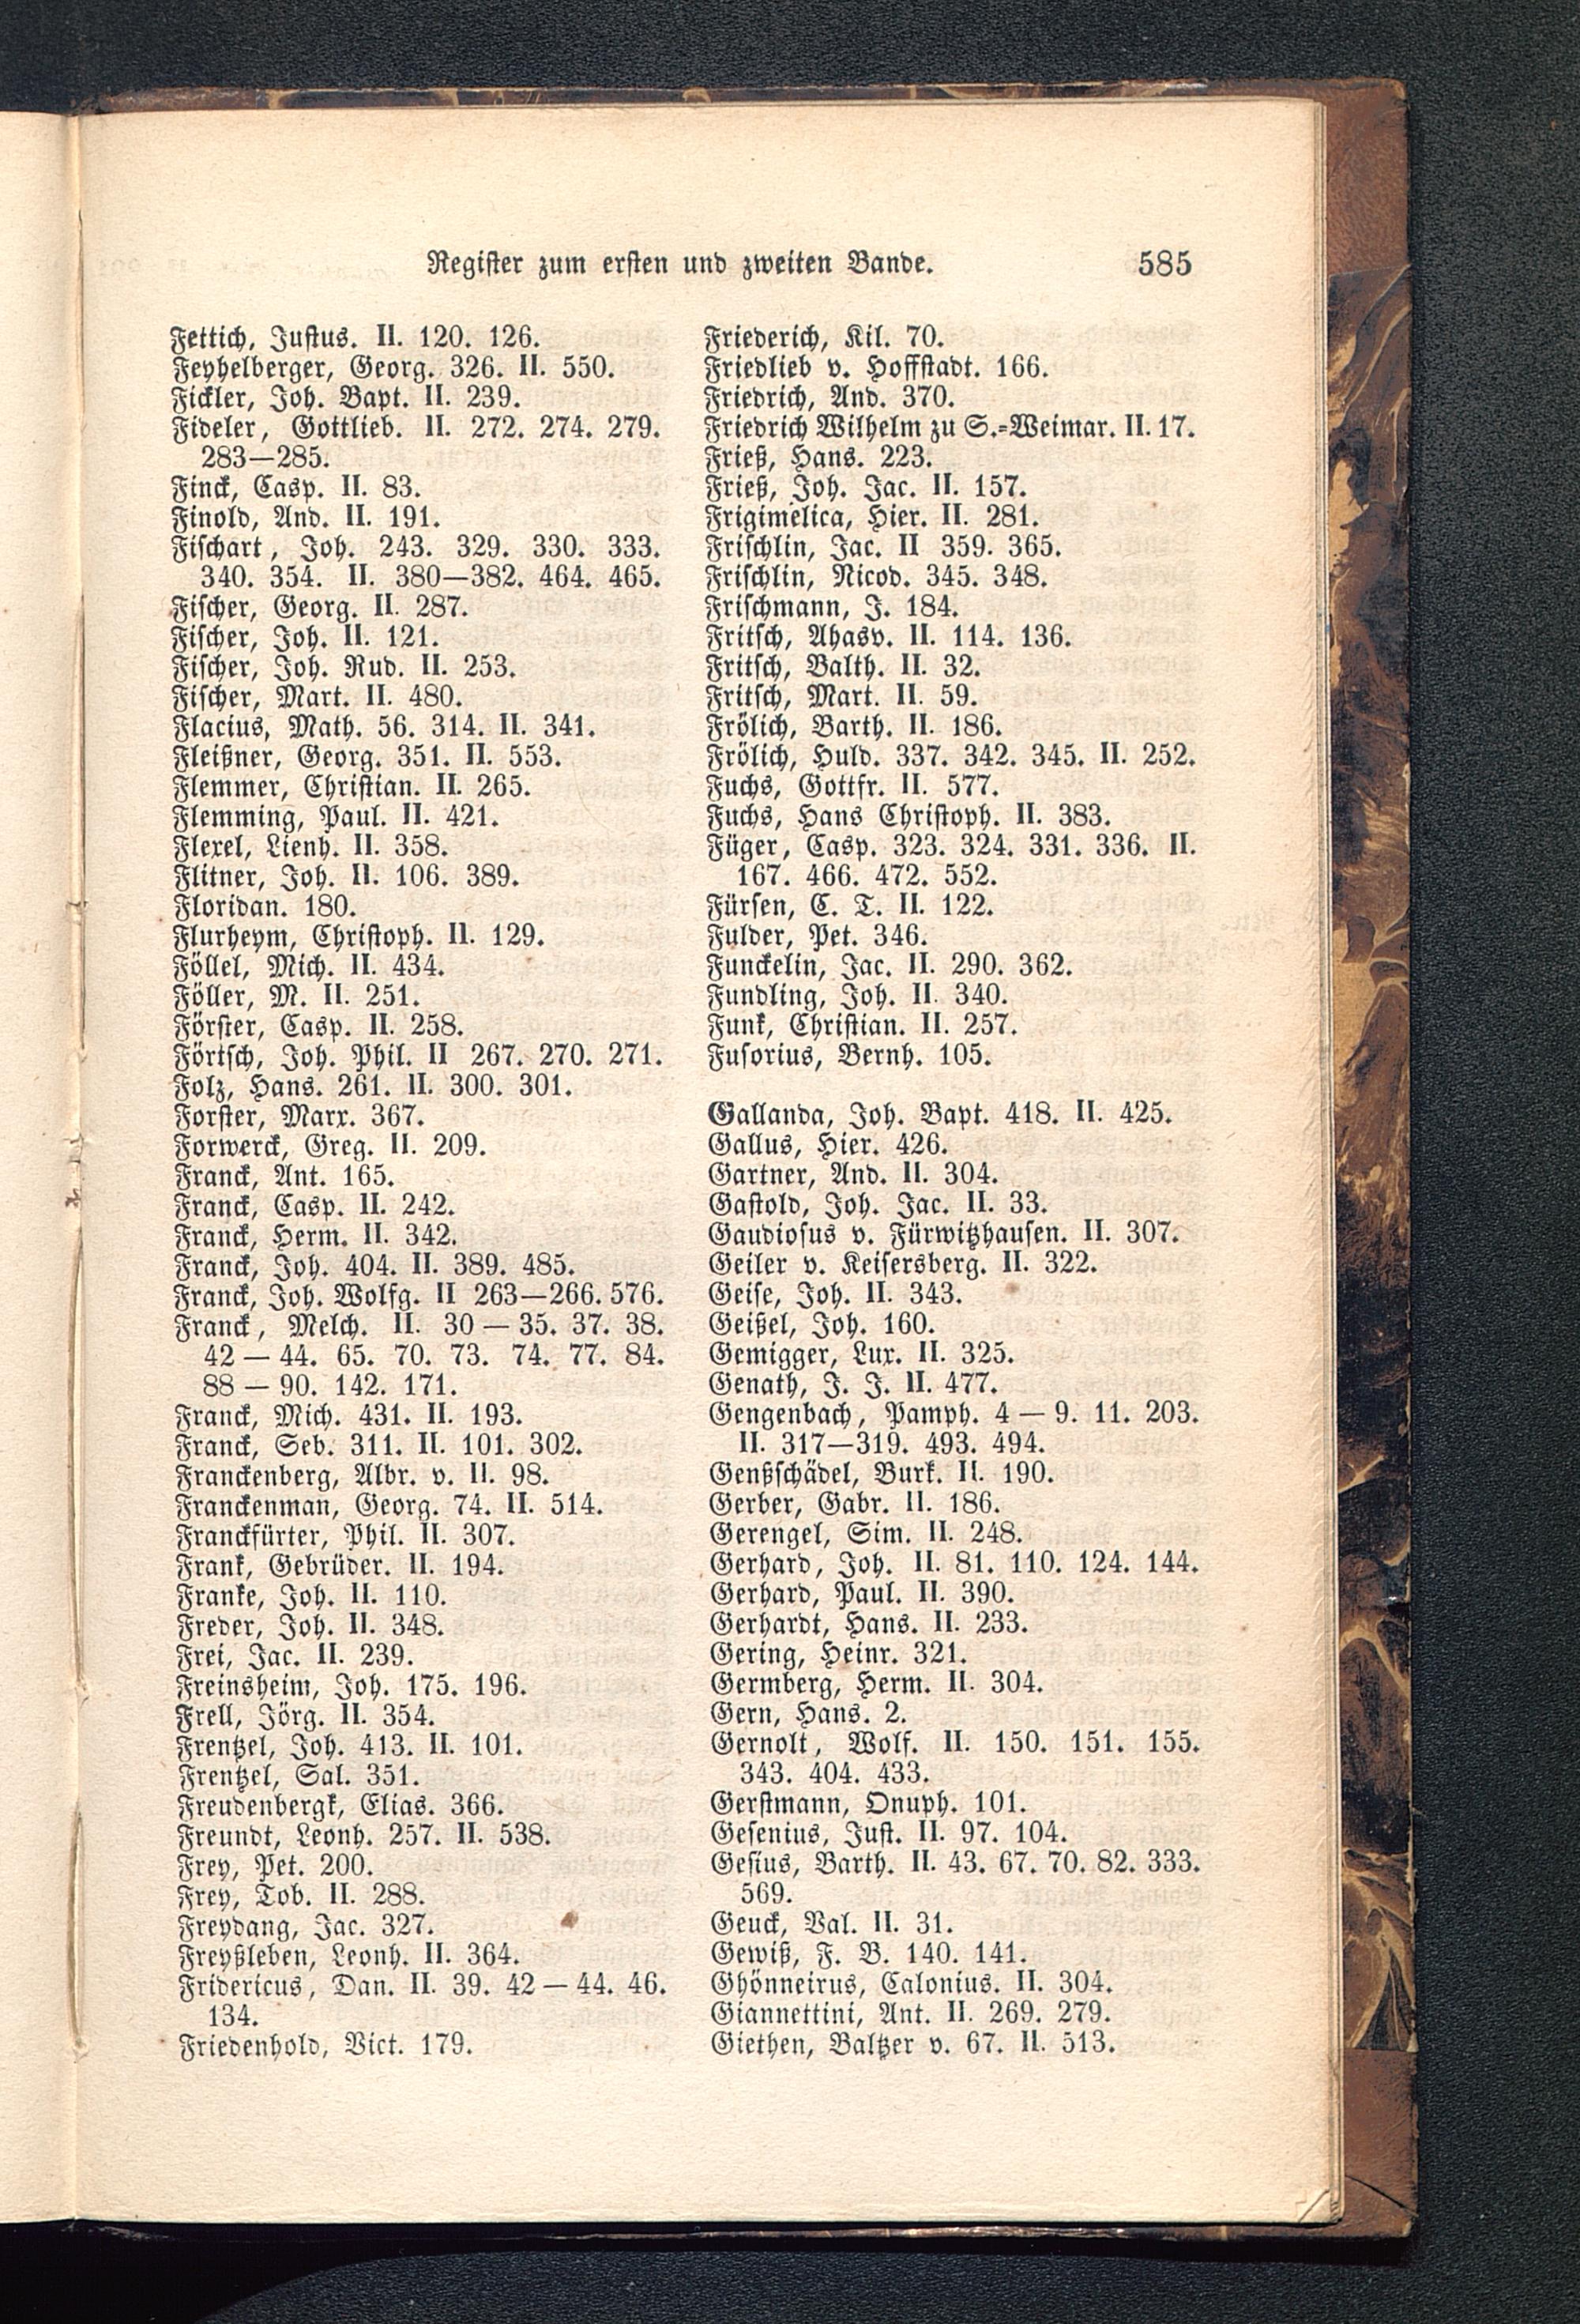 Register zum ersten und zweiten Bande. 585
Fettich, Justus. II. 120. 126.
Feyhelberger, Georg. 326. II. 550.
Fickler, Joh. Bapt. II. 239.
Fideler, Gottlieb. II. 272. 274. 279.
283—285.
Finck, Casp. II. 83.
Finold, And. II. 191.
Fischart, Joh. 243. 329. 330. 333.
340. 354. II. 380—382. 464. 465.
Fischer, Georg. II. 287.
Fischer, Joh. II. 121.
Fischer, Joh. Rud. II. 253.
Fischer, Mart. II. 480.
Flacius, Math. 56. 314. II. 341.
Fleißner, Georg. 351. II. 553.
Flemmer, Christian. II. 265.
Flemming, Paul. II. 421.
Flexel, Lienh. II. 358.
Flitner, Joh. II. 106. 389.
Floridan. 180.
Flurheym, Christoph. II. 129.
Föllel, Mich. II. 434.
Föller, M. II. 251.
Förster, Casp. II. 258.
Förtsch, Joh. Phil. II 267. 270. 271.
Folz, Hans. 261. II. 300. 301.
Forster, Marx. 367.
Forwerck, Greg. II. 209.
Franck, Ant. 165.
Franck, Casp. II. 242.
Franck, Herm. II. 342.
Franck, Joh. 404. II. 389. 485.
Franck, Joh. Wolfg. II 263—266. 576.
Franck, Melch. II. 30 — 35. 37. 38.
42 — 44. 65. 70. 73. 74. 77. 84.
88 — 90. 142. 171.
Franck, Mich. 431. II. 193.
Franck, Seb. 311. II. 101. 302.
Franckenberg, Albr. v. II. 98.
Franckenman, Georg. 74. II. 514.
Franckfürter, Phil. II. 307.
Frank, Gebrüder. II. 194.
Franke, Joh. II. 110.
Freder, Joh. II. 348.
Frei, Jac. II. 239.
Freinsheim, Joh. 175. 196.
Frell, Jörg. II. 354.
Frentzel, Joh. 413. II. 101.
Frentzel, Sal. 351.
Freudenbergk, Elias. 366.
Freundt, Leonh. 257. II. 538.
Frey, Pet. 200.
Frey, Tob. II. 288.
Freydang, Jac. 327.
Freyßleben, Leonh. II. 364.
Fridericus, Dan. II. 39. 42 — 44. 46.
134.
Friedenhold, Vict. 179.
Friederich, Kil. 70.
Friedlieb v. Hoffstadt. 166.
Friedrich, And. 370.
Friedrich Wilhelm zu S.=Weimar. II. 17.
Frieß, Hans. 223.
Frieß, Joh. Jac. II. 157.
Frigimelica, Hier. II. 281.
Frischlin, Jac. II 359. 365.
Frischlin, Nicod. 345. 348.
Frischmann, J. 184.
Fritsch, Ahasv. II. 114. 136.
Fritsch, Balth. II. 32.
Fritsch, Mart. II. 59.
Frölich, Barth. II. 186.
Frölich, Huld. 337. 342. 345. II. 252.
Fuchs, Gottfr. II. 577.
Fuchs, Hans Christoph. II. 383.
Füger, Casp. 323. 324. 331. 336. II.
167. 466. 472. 552.
Fürsen, C. T. II. 122.
Fulder, Pet. 346.
Funckelin, Jac. II. 290. 362.
Fundling, Joh. II. 340.
Funk, Christian. II. 257.
Fusorius, Bernh. 105.
Gallanda, Joh. Bapt. 418. II. 425.
Gallus, Hier. 426.
Gartner, And. II. 304.
Gastold, Joh. Jac. II. 33.
Gaudiosus v. Fürwitzhausen. II. 307.
Geiler v. Keisersberg. II. 322.
Geise, Joh. II. 343.
Geißel, Joh. 160.
Gemigger, Lux. II. 325.
Genath, J. J. II. 477.
Gengenbach, Pamph. 4 — 9. 11. 203.
II. 317—319. 493. 494.
Genßschädel, Burk. II. 190.
Gerber, Gabr. II. 186.
Gerengel, Sim. II. 248.
Gerhard, Joh. II. 81. 110. 124. 144.
Gerhard, Paul. II. 390.
Gerhardt, Hans. II. 233.
Gering, Heinr. 321.
Germberg, Herm. II. 304.
Gern, Hans. 2.
Gernolt, Wolf. II. 150. 151. 155.
343. 404. 433.
Gerstmann, Onuph. 101.
Gesenius, Just. II. 97. 104.
Gesius, Barth. II. 43. 67. 70. 82. 333.
569.
Geuck, Val. II. 31.
Gewiß, F. B. 140. 141.
Ghönneirus, Calonius. II. 304.
Giannettini, Ant. II. 269. 279.
Giethen, Baltzer v. 67. II. 513.